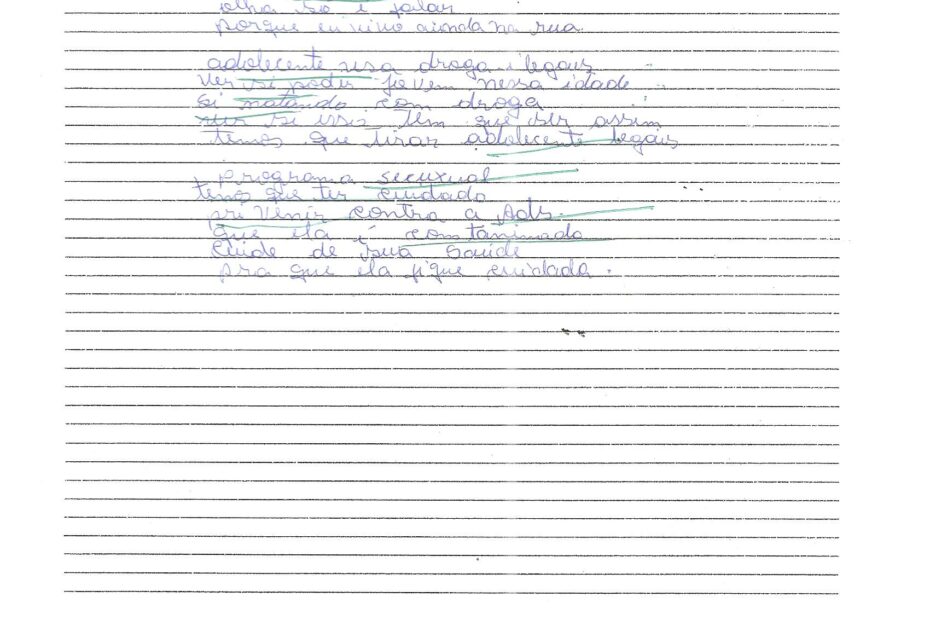 olha so i falar
porque eu vivo aionda na rua
adolecente usa droga ilegais
ver si poder jovem nessa idade
si matando com droga
ver si isso tem que ser assim
temos que tirar adolecente legais
programa secuxual
tens que ter cuidado
pri venir contra a Ads.
que ela é comtanimado
Cuide de sua Saúde
pra que ela fique cuidada.